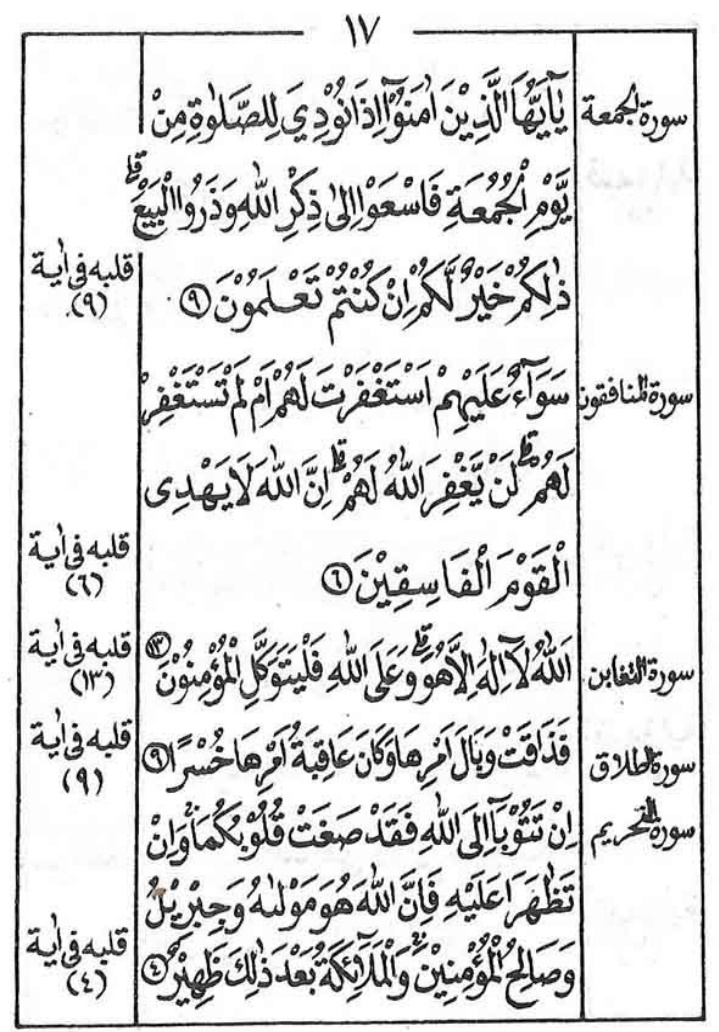 ١٧
سورة الجمعة
يٰٓاَيُّهَا الَّذِيْنَ اٰمَنُوْٓا اِذَا نُوْدِيَ لِلصَّلٰوةِ مِنْ
يَّوْمِ الْجُمُعَةِ فَاسْعَوْا اِلٰى ذِكْرِ اللهِ وَذَرُوا الْبَيْعَ ۗ
ذٰلِكُمْ خَيْرٌ لَّكُمْ اِنْ كُنْتُمْ تَعْلَمُوْنَ ٩
قلبه فى اٰية
(٩)
سورة المنافقون
سَوَآءٌ عَلَيْهِمْ اَسْتَغْفَرْتَ لَهُمْ اَمْ لَمْ تَسْتَغْفِرْ
لَهُمْ ۗ لَنْ يَّغْفِرَ اللهُ لَهُمْ ۗ اِنَّ اللهَ لَا يَهْدِى
الْقَوْمَ الْفَاسِقِيْنَ ٦
قلبه فى اٰية
(٦)
سورة التغابن
اَللهُ لَآ اِلٰهَ اِلَّا هُوَ ۗ وَعَلَى اللهِ فَلْيَتَوَكَّلِ الْمُؤْمِنُوْنَ ١٣
قلبه فى اٰية
(١٣)
سورة الطلاق
فَذَاقَتْ وَبَالَ اَمْرِهَا وَكَانَ عَاقِبَةُ اَمْرِهَا خُسْرًا ٩
قلبه فى اٰية
(٩)
سورة التحريم
اِنْ تَتُوْبَآ اِلَى اللهِ فَقَدْ صَغَتْ قُلُوْبُكُمَا ۚ وَاِنْ
تَظٰهَرَا عَلَيْهِ فَاِنَّ اللهَ هُوَ مَوْلٰىهُ وَجِبْرِيْلُ
وَصَالِحُ الْمُؤْمِنِيْنَ ۚ وَالْمَلَآئِكَةُ بَعْدَ ذٰلِكَ ظَهِيْرٌ ٤
قلبه فى اٰية
(٤)